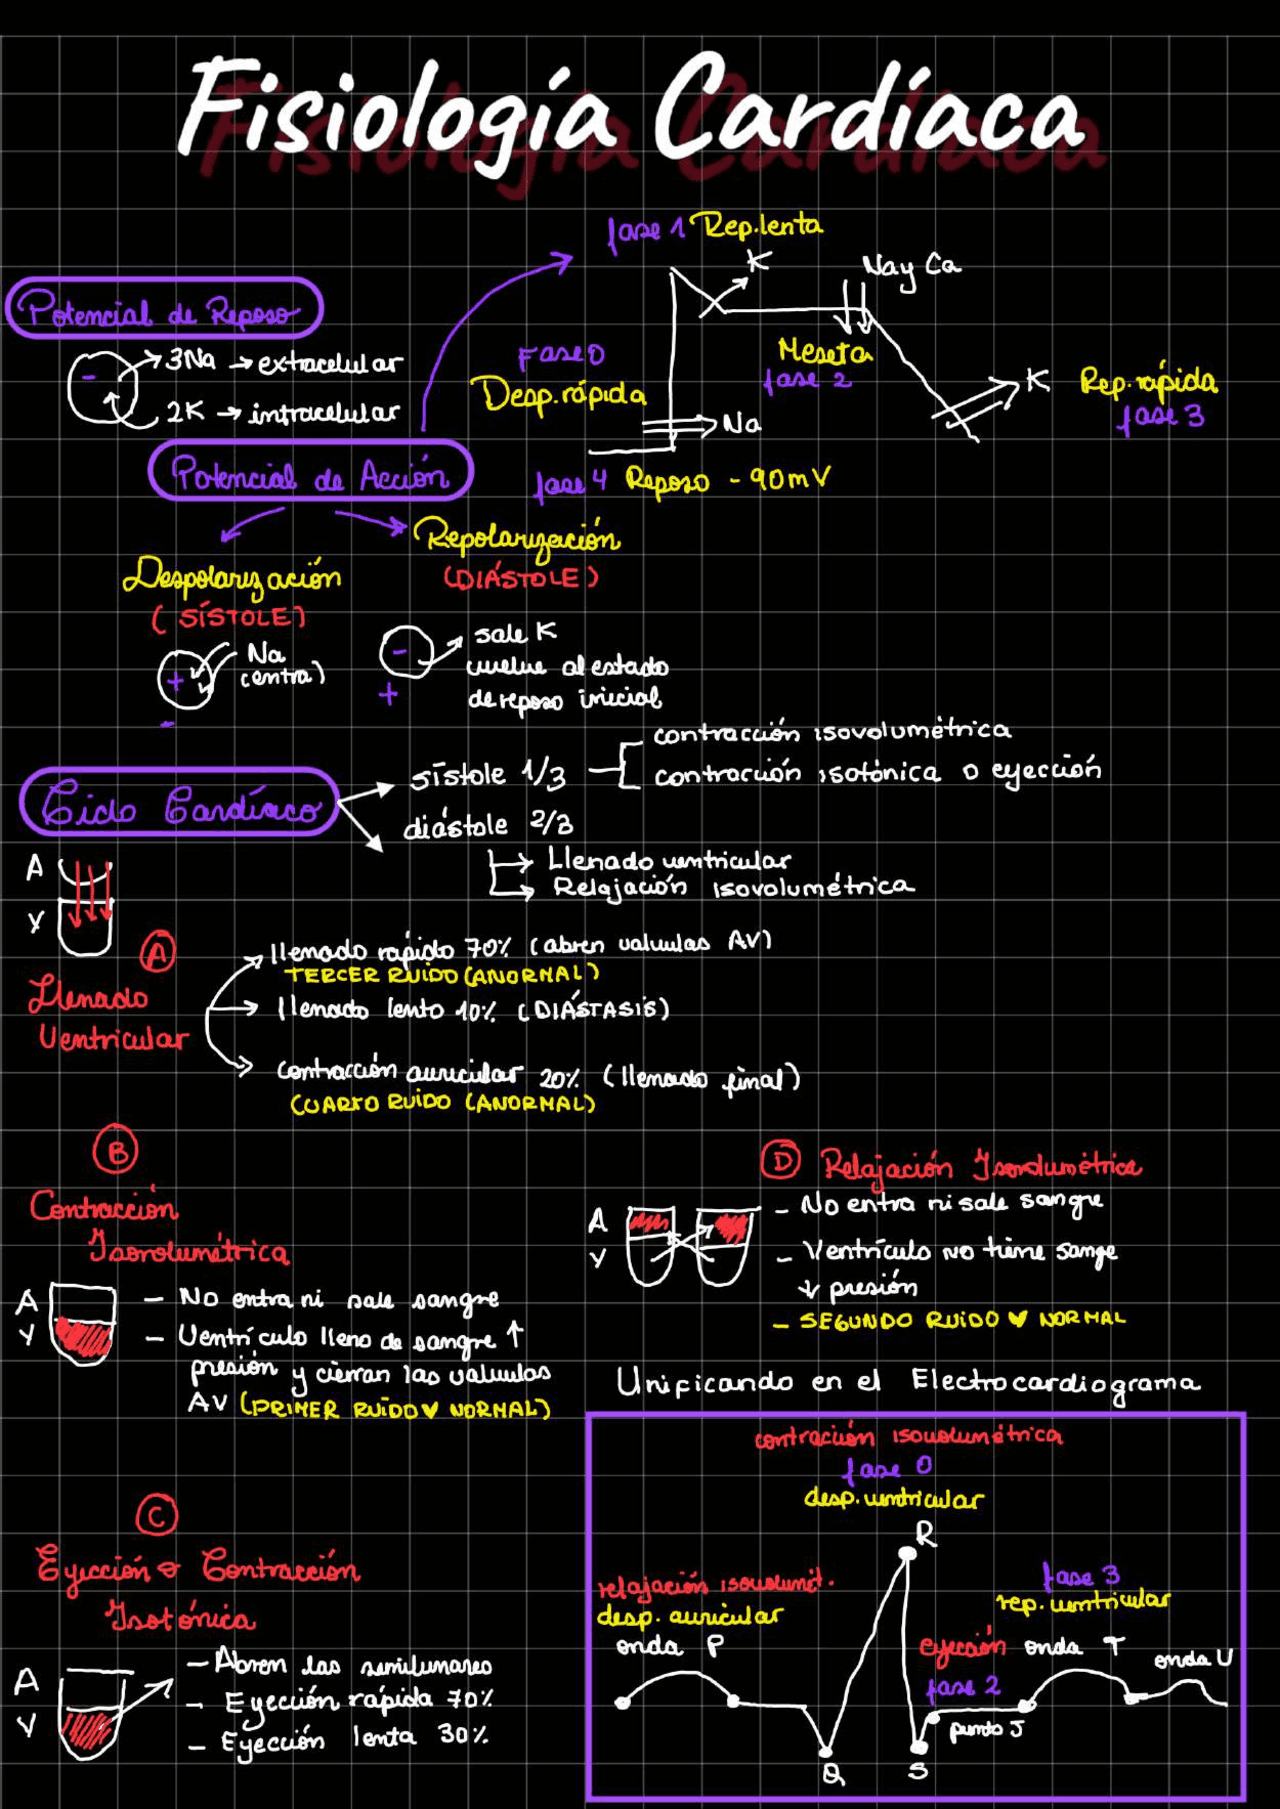 Fisiología Cardíaca
fase 1 Rep. lenta
K
Na y Ca
Potencial de Reposo
3Na → extracelular
2K → intracelular
-
Fase 0
Desp. rápida
Na
Meseta
fase 2
K
Rep. rápida
fase 3
fase 4 Reposo - 90mV
Potencial de Acción
Despolarización
(SÍSTOLE)
Na
(entra)
+
-
Repolarización
(DIÁSTOLE)
-
+
sale K
vuelve al estado
de reposo inicial
Ciclo Cardíaco
sístole 1/3
contracción isovolumétrica
contracción isotónica o eyección
diástole 2/3
Llenado ventricular
Relajación isovolumétrica
A
V
A
Llenado
Ventricular
llenado rápido 70% (abren valvulas AV)
TERCER RUIDO (ANORMAL)
llenado lento 10% (DIÁSTASIS)
contracción auricular 20% (llenado final)
CUARTO RUIDO (ANORMAL)
B
Contracción
Isovolumétrica
A
V
- No entra ni sale sangre
- Ventrículo lleno de sangre ↑
presión y cierran las valvulas
AV (PRIMER RUIDO ♥ NORMAL)
C
Eyección o Contracción
Isotónica
A
V
- Abren las semilunares
- Eyección rápida 70%
- Eyección lenta 30%
D Relajación Isovolumétrica
A
V
- No entra ni sale sangre
- Ventrículo no tiene sange
↓ presión
- SEGUNDO RUIDO ♥ NORMAL
Unificando en el Electrocardiograma
contración isovolumétrica
fase 0
desp. ventricular
R
relajación isovolumét.
desp. auricular
onda P
Q
S
eyección
fase 2
punto J
fase 3
rep. ventricular
onda T
onda U